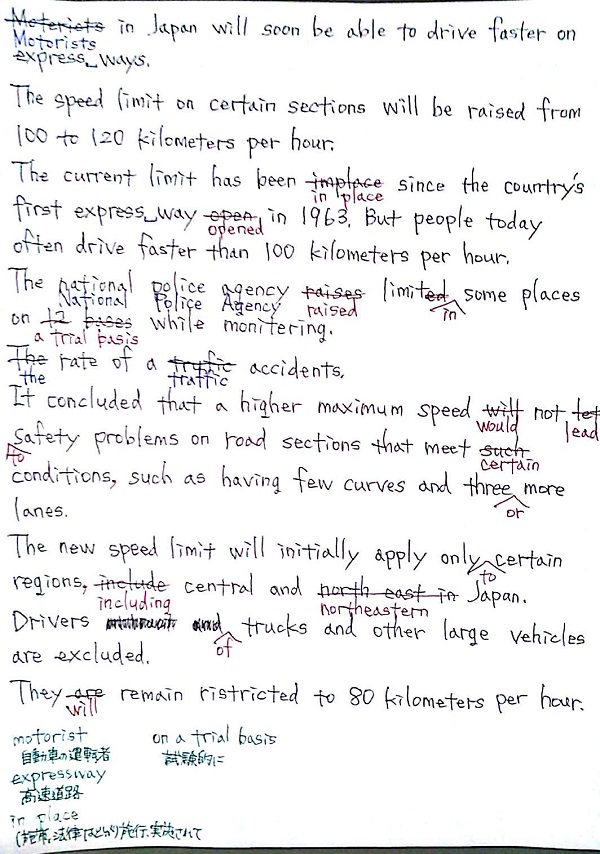 Moterists in Japan will soon be able to drive faster on
Motorists
express ways.
The speed limit on certain sections will be raised from
100 to 120 kilometers per hour.
The current limit has been implace since the country's
in place
first express way open in 1963. But people today
opened
often drive faster than 100 kilometers per hour.
The national police agency raises limited some places
National Police Agency raised in
on 12 bases while monitering.
a trial basis
The rate of a truffic accidents.
the traffic
It concluded that a higher maximum speed will not let
would lead
safety problems on road sections that meet such
to certain
conditions, such as having few curves and three more
or
lanes.
The new speed limit will initially apply only certain
to
regions, include central and north east in Japan.
including northeastern
Drivers and trucks and other large vehicles
of
are excluded.
They are remain ristricted to 80 kilometers per hour.
will
motorist on a trial basis
自動車の運転者 試験的に
expressway
高速道路
in place
法律などが 施行、実施されて